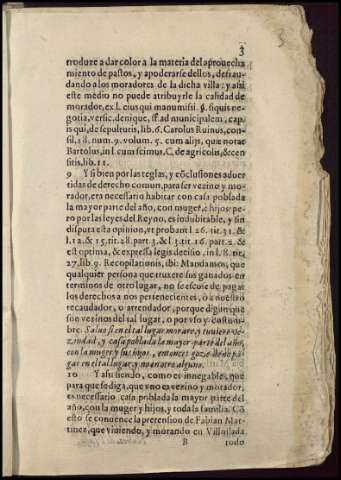 3
troduze a dar color a la materia del aprouecha
miento de pastos, y apoderarse dellos, defrau-
dando a los moradores de la dicha villa: y assi
este medio no puede atribuyrle la calidad de
morador, ex l. eius qui manumisit. §. siquis ne-
gotia, versic. denique, ff. ad municipalem, cap.
is qui, de sepulturis, lib. 6. Carolus Ruinus, con-
sil. 18. num. 9. volum. 5. cum alijs, que notat
Bartolus, in l. cum scimus, C. de agricolis, & cen-
sitis, lib. 11.
9 Y si bien por las reglas, y cõclusiones aduer
tidas de derecho comun, para ser vezino y mo-
rador, era necessario habitar con casa poblada
la mayor parte del año, con muger, e hijos: pe-
ro por las leyes del Reyno, es indubitable, y sin
disputa esta opinion, vt probant l. 26. tit. 31. &
l. 12. & 15. tit. 28. part. 3. & l. 3. tit. 16. part. 2. &
est optima, & expressa legis decisio, in l. 8. tit.
27. lib. 9. Recopilationis, ibi: Mandamos, que
qualquier persona que truxere sus ganados en
terminos de otro lugar, no se escuse de pagar
los derechos a nos pertenecientes, o a nuestro
recaudador, o arrendador, porque digan que
son vezinos del tal lugar, o por vso y costum-
bre. Saluo si en el tal lugar morare y tuuiere ve-
zindad, y casa poblada la mayor parte del año,
con la muger y sus hijos, entonces goze de no pa-
gar en el tal lugar y no en otro alguno.
10 Y assi siendo, como es innegable, que
para que se diga, que vno es vezino y morador,
es necessario casa poblada la mayor parte del
año, con la muger y hijos, y toda la familia. Cõ
esto se conuence la pretension de Fabian Mar-
tinez, que viuiendo, y morando en Villoslada
B todo